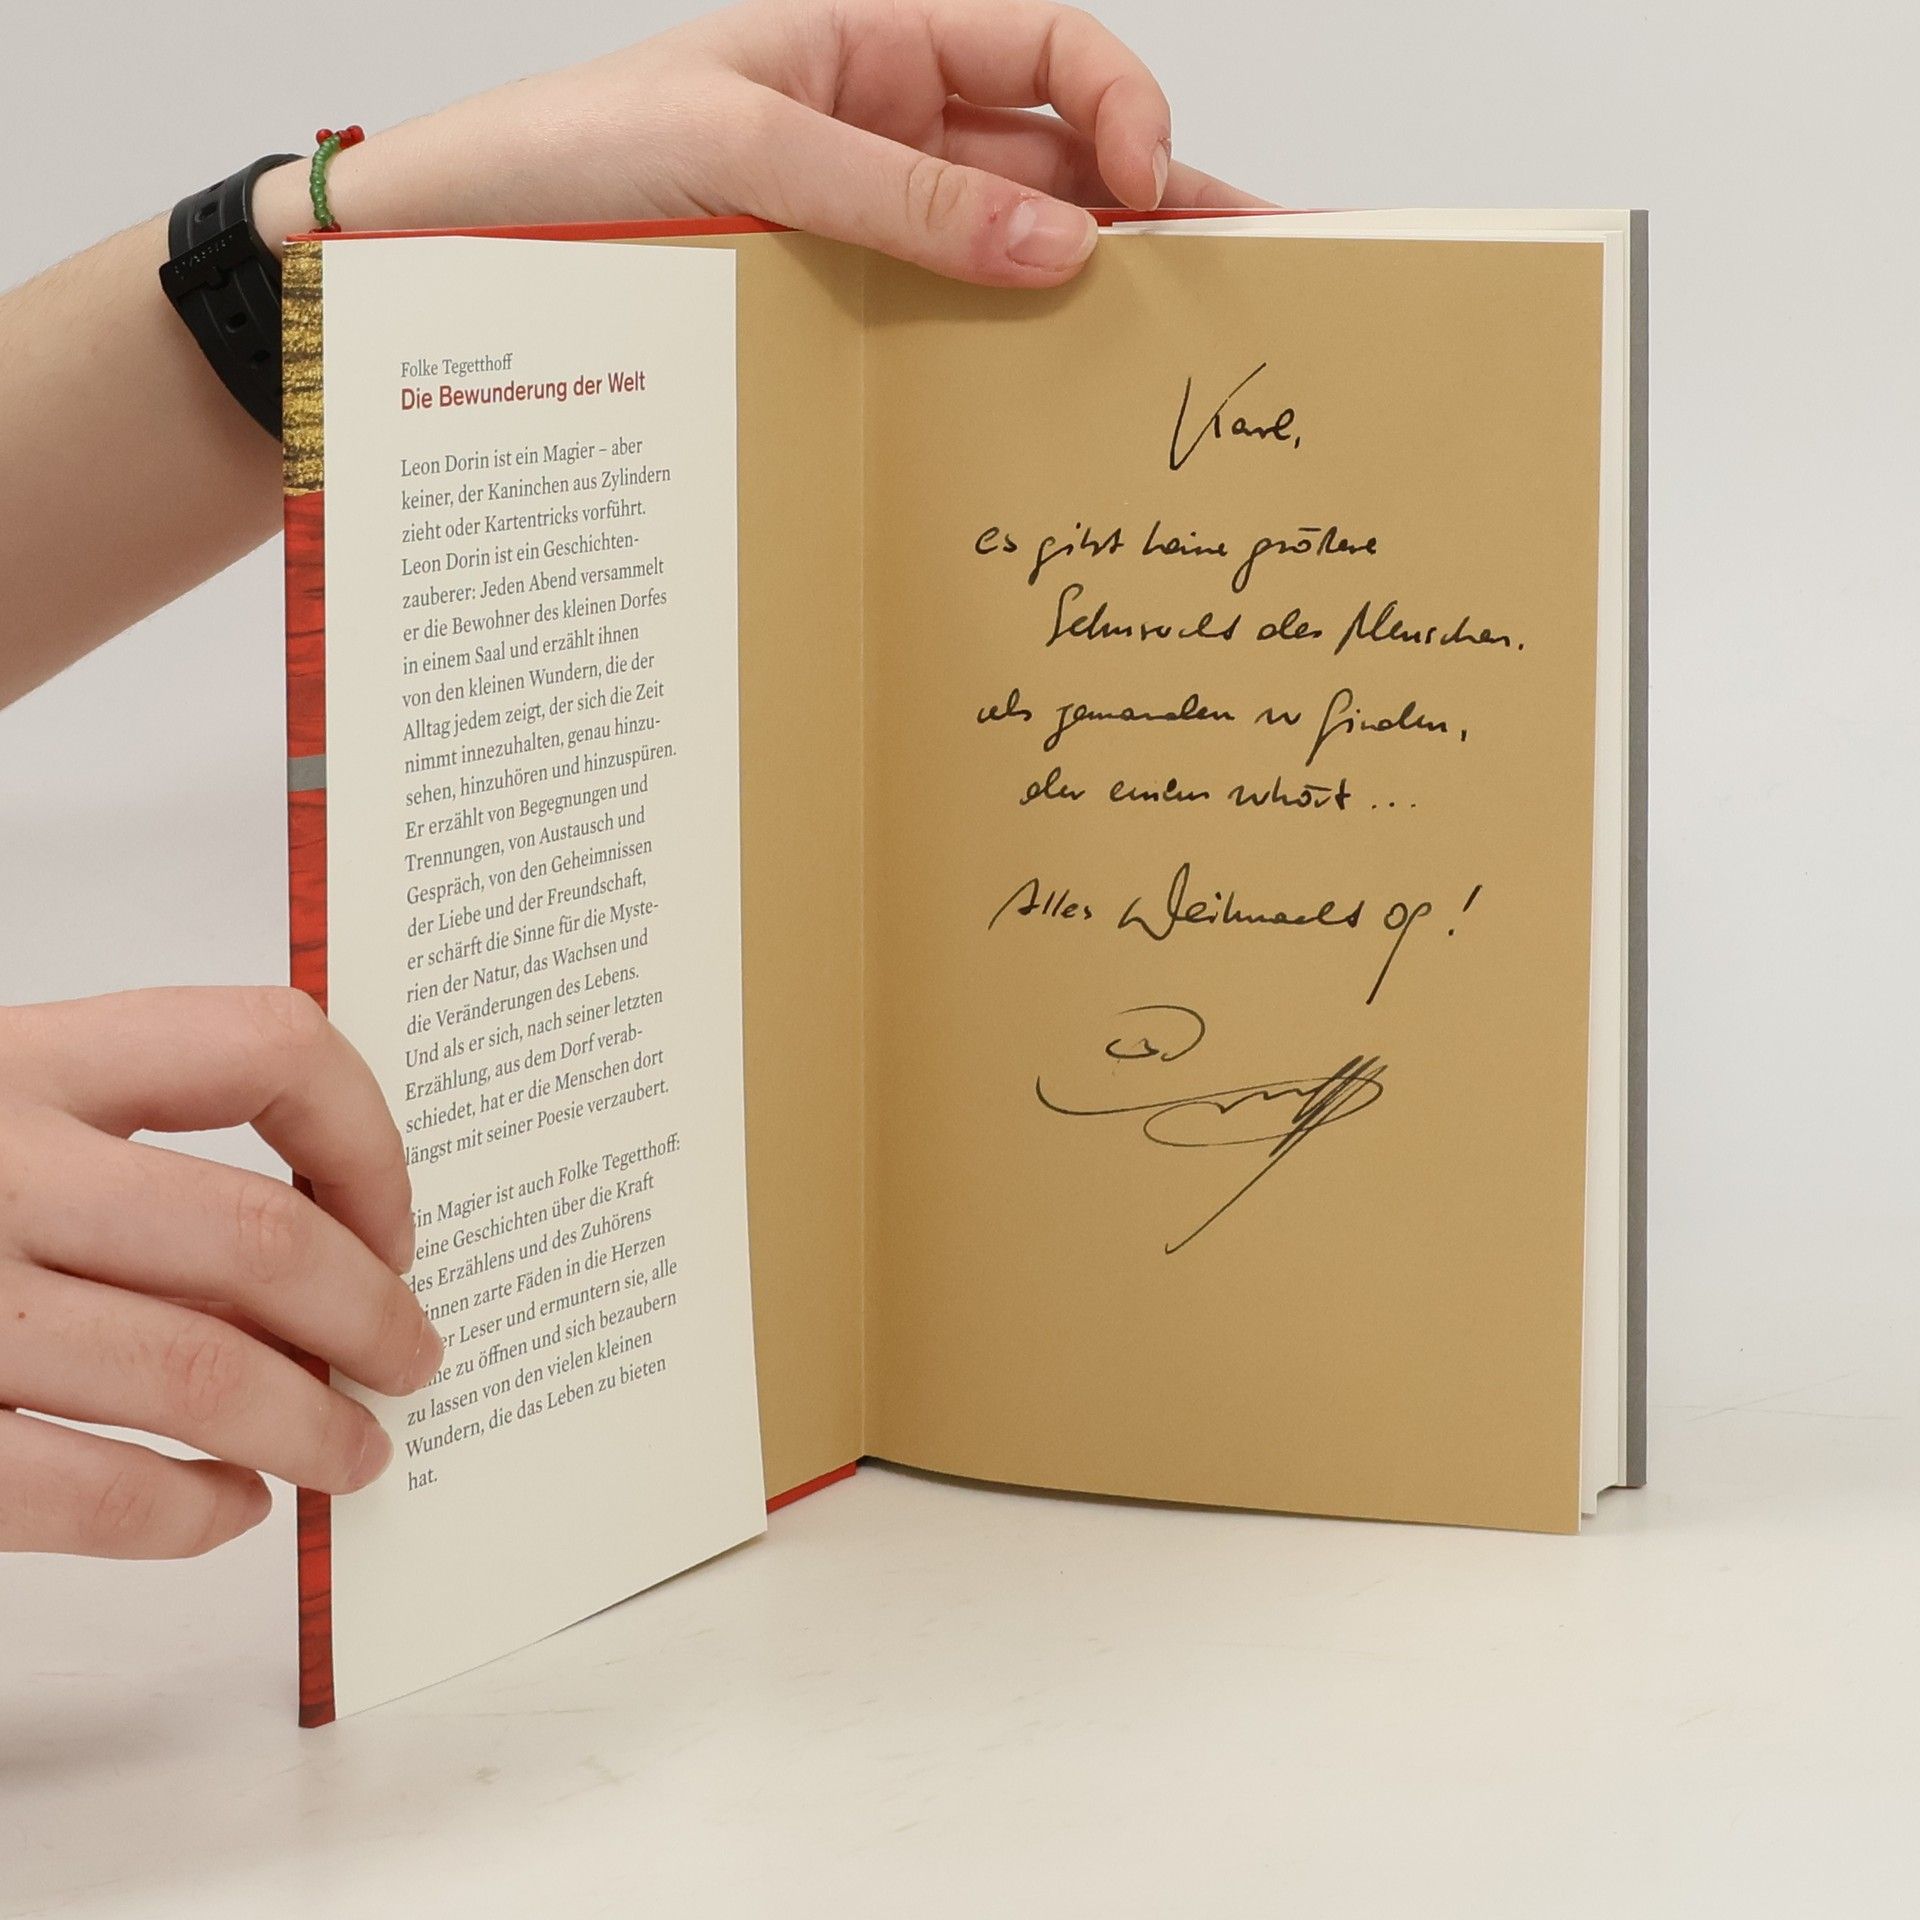 Folke Tegetthoff
Die Bewunderung der Welt
Leon Dorin ist ein Magier – aber
keiner, der Kaninchen aus Zylindern
zieht oder Kartentricks vorführt.
Leon Dorin ist ein Geschichten-
zauberer: Jeden Abend versammelt
er die Bewohner des kleinen Dorfes
in einem Saal und erzählt ihnen
von den kleinen Wundern, die der
Alltag jedem zeigt, der sich die Zeit
nimmt innezuhalten, genau hinzu-
sehen, hinzuhören und hinzuspüren.
Er erzählt von Begegnungen und
Trennungen, von Austausch und
Gespräch, von den Geheimnissen
der Liebe und der Freundschaft,
er schärft die Sinne für die Myste-
rien der Natur, das Wachsen und
die Veränderungen des Lebens.
Und als er sich, nach seiner letzten
Erzählung, aus dem Dorf verab-
schiedet, hat er die Menschen dort
längst mit seiner Poesie verzaubert.
Ein Magier ist auch Folke Tegetthoff:
eine Geschichten über die Kraft
des Erzählens und des Zuhörens
innen zarte Fäden in die Herzen
er Leser und ermuntern sie, alle
ne zu öffnen und sich bezaubern
zu lassen von den vielen kleinen
Wundern, die das Leben zu bieten
hat.
Karl,
es gibt keine größere
Sehnsucht des Menschen.
als jemanden zu finden,
der einem zuhört ...
Alles Weihnacht